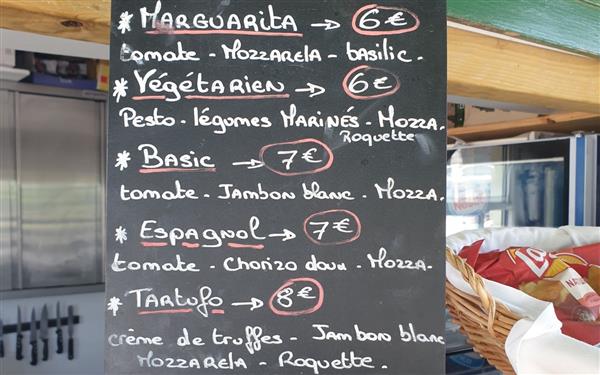 * MARGUARITA → 6€
tomate - MOZZARELA - basilic.
* Végétarien → 6€
Pesto - légumes MARINÉS - MOZZA.
Roquette
* BASIC → 7€
tomate - JAMbon blanc - MOZZA.
* ESPAGNOL → 7€
tomate - CHORIZO doux - MOZZA.
* TARTUFO → 8€
crème de truffes - JAMbon blanc
MOZZARELA - ROQUETTE.